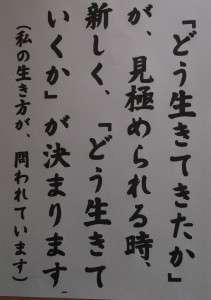 「どう生きてきたか」
が、見極められる時、
新しく、「どう生きて
いくか」が決まります.
（私の生き方が、問われています）